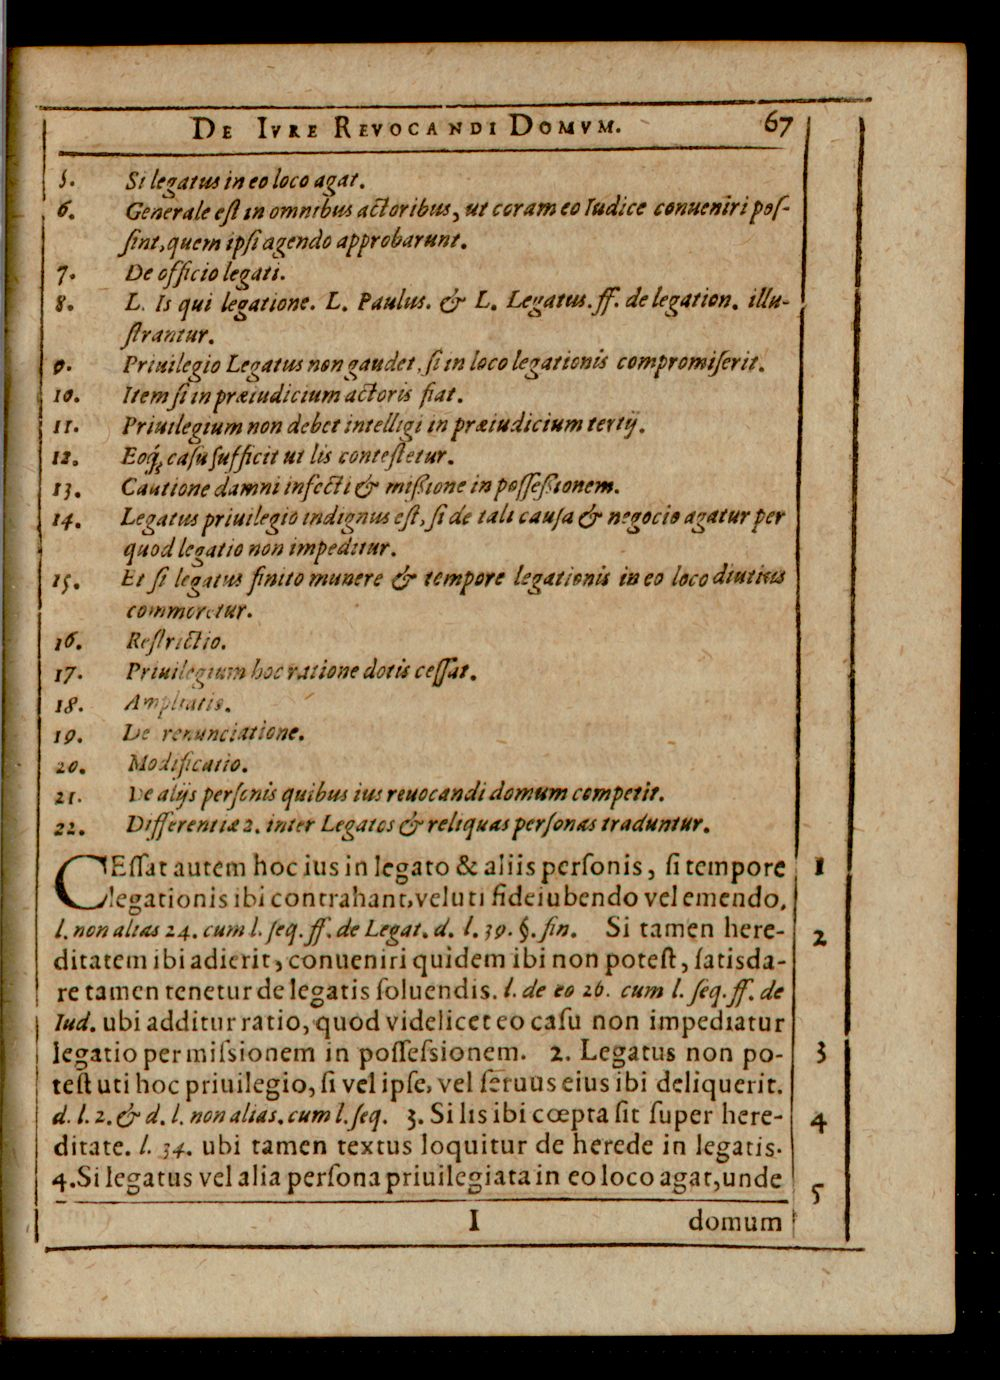 DE IVRE REVOCANDI DOMVM. 67
5. Si legatus in eo loco agat.
6. Generale eſt in omnibus actoribus, ut coram eo Iudice conueniri poſ-
ſint, quem ipſi agendo approbarunt.
7. De officio legati.
8. L. Is qui legatione. L. Paulus. & L. Legatus. ff. de legation. illu-
ſtrantur.
9. Priuilegio Legatus non gaudet, ſi in loco legationis compromiſerit.
10. Item ſi in præiudicium actoris fiat.
11. Priuilegium non debet intelligi in præiudicium tertij.
12. Eoq́; caſu ſufficit ut lis conteſtetur.
13. Cautione damni infecti & mißione in poſſeßionem.
14. Legatus priuilegio indignus eſt, ſi de tali cauſa & negocio agatur per
quod legatio non impeditur.
15. Et ſi legatus finito munere & tempore legationis in eo loco diutius
commoretur.
16. Reſtrictio.
17. Priuilegium hoc ratione dotis ceſſat.
18. Ampliatio.
19. De renunciatione.
20. Modificatio.
21. De alijs perſonis quibus ius reuocandi domum competit.
22. Differentiæ 2. inter Legatos & reliquas perſonas traduntur.
CEſſat autem hoc ius in legato & aliis perſonis, ſi tempore 1
legationis ibi contrahant, veluti fideiubendo vel emendo,
l. non alias 24. cum l. ſeq. ff. de Legat. d. l. 39. §. fin. Si tamen here- 2
ditatem ibi adierit, conueniri quidem ibi non poteſt, ſatisda-
re tamen tenetur de legatis ſoluendis. l. de eo 26. cum l. ſeq. ff. de
Iud. ubi additur ratio, quod videlicet eo caſu non impediatur
legatio per miſsionem in poſſeſsionem. 2. Legatus non po- 3
teſt uti hoc priuilegio, ſi vel ipſe, vel ſeruus eius ibi deliquerit.
d. l. 2. & d. l. non alias. cum l. ſeq. 3. Si lis ibi cœpta ſit ſuper here- 4
ditate. l. 34. ubi tamen textus loquitur de herede in legatis.
4. Si legatus vel alia perſona priuilegiata in eo loco agat, unde 5
I domum